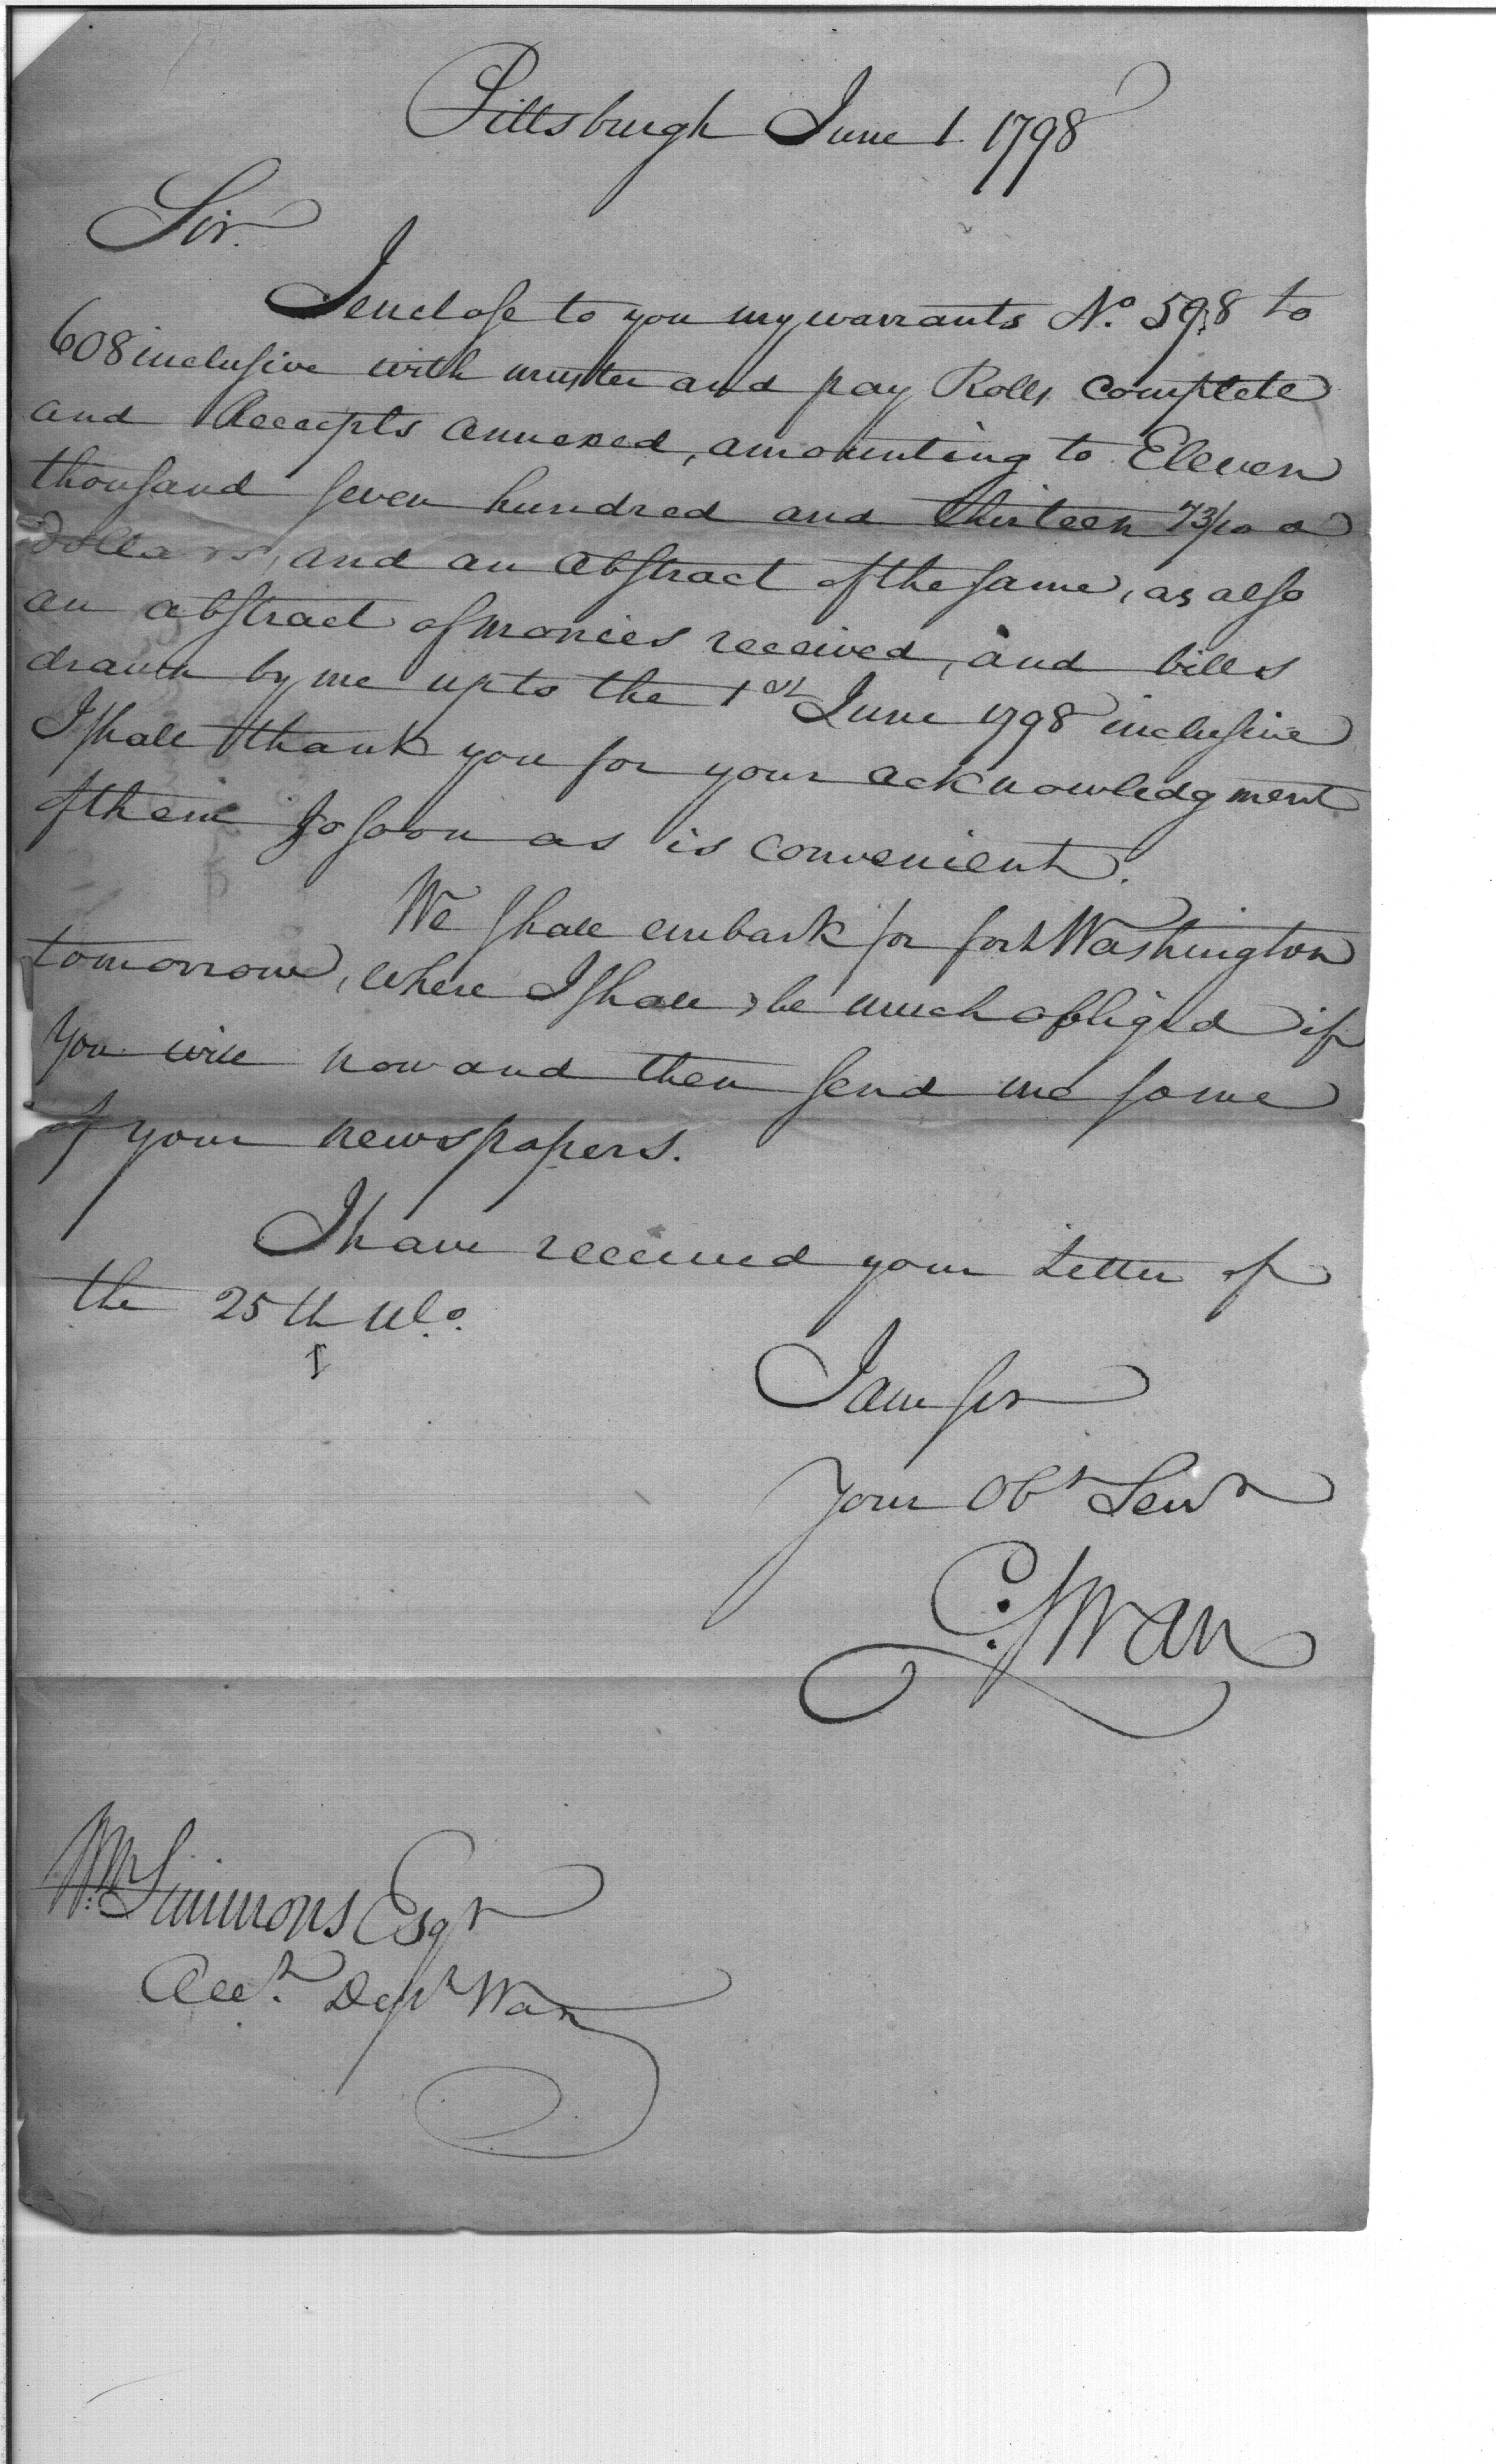 Pittsburgh June 1. 1798
Sir.
I enclose to you my warrants No. 598 to
608 inclusive with muster and pay Rolls complete
and Receipts annexed, amounting to Eleven
thousand seven hundred and thirteen 73/100
Dollars, and an abstract of the same, as also
an abstract of monies received, and bills
drawn by me up to the 1st June 1798 inclusive
I shall thank you for your acknowledgment
of them so soon as is convenient.
We shall embark for fort Washington
tomorrow, where I shall be much obliged if
you will now and then send me some
of your newspapers.
I have received your Letter of
the 25th Ulo.
I am sir
Your Obt Servt
C. Swan
Wm Simmons Esqr
Acct. Dept War